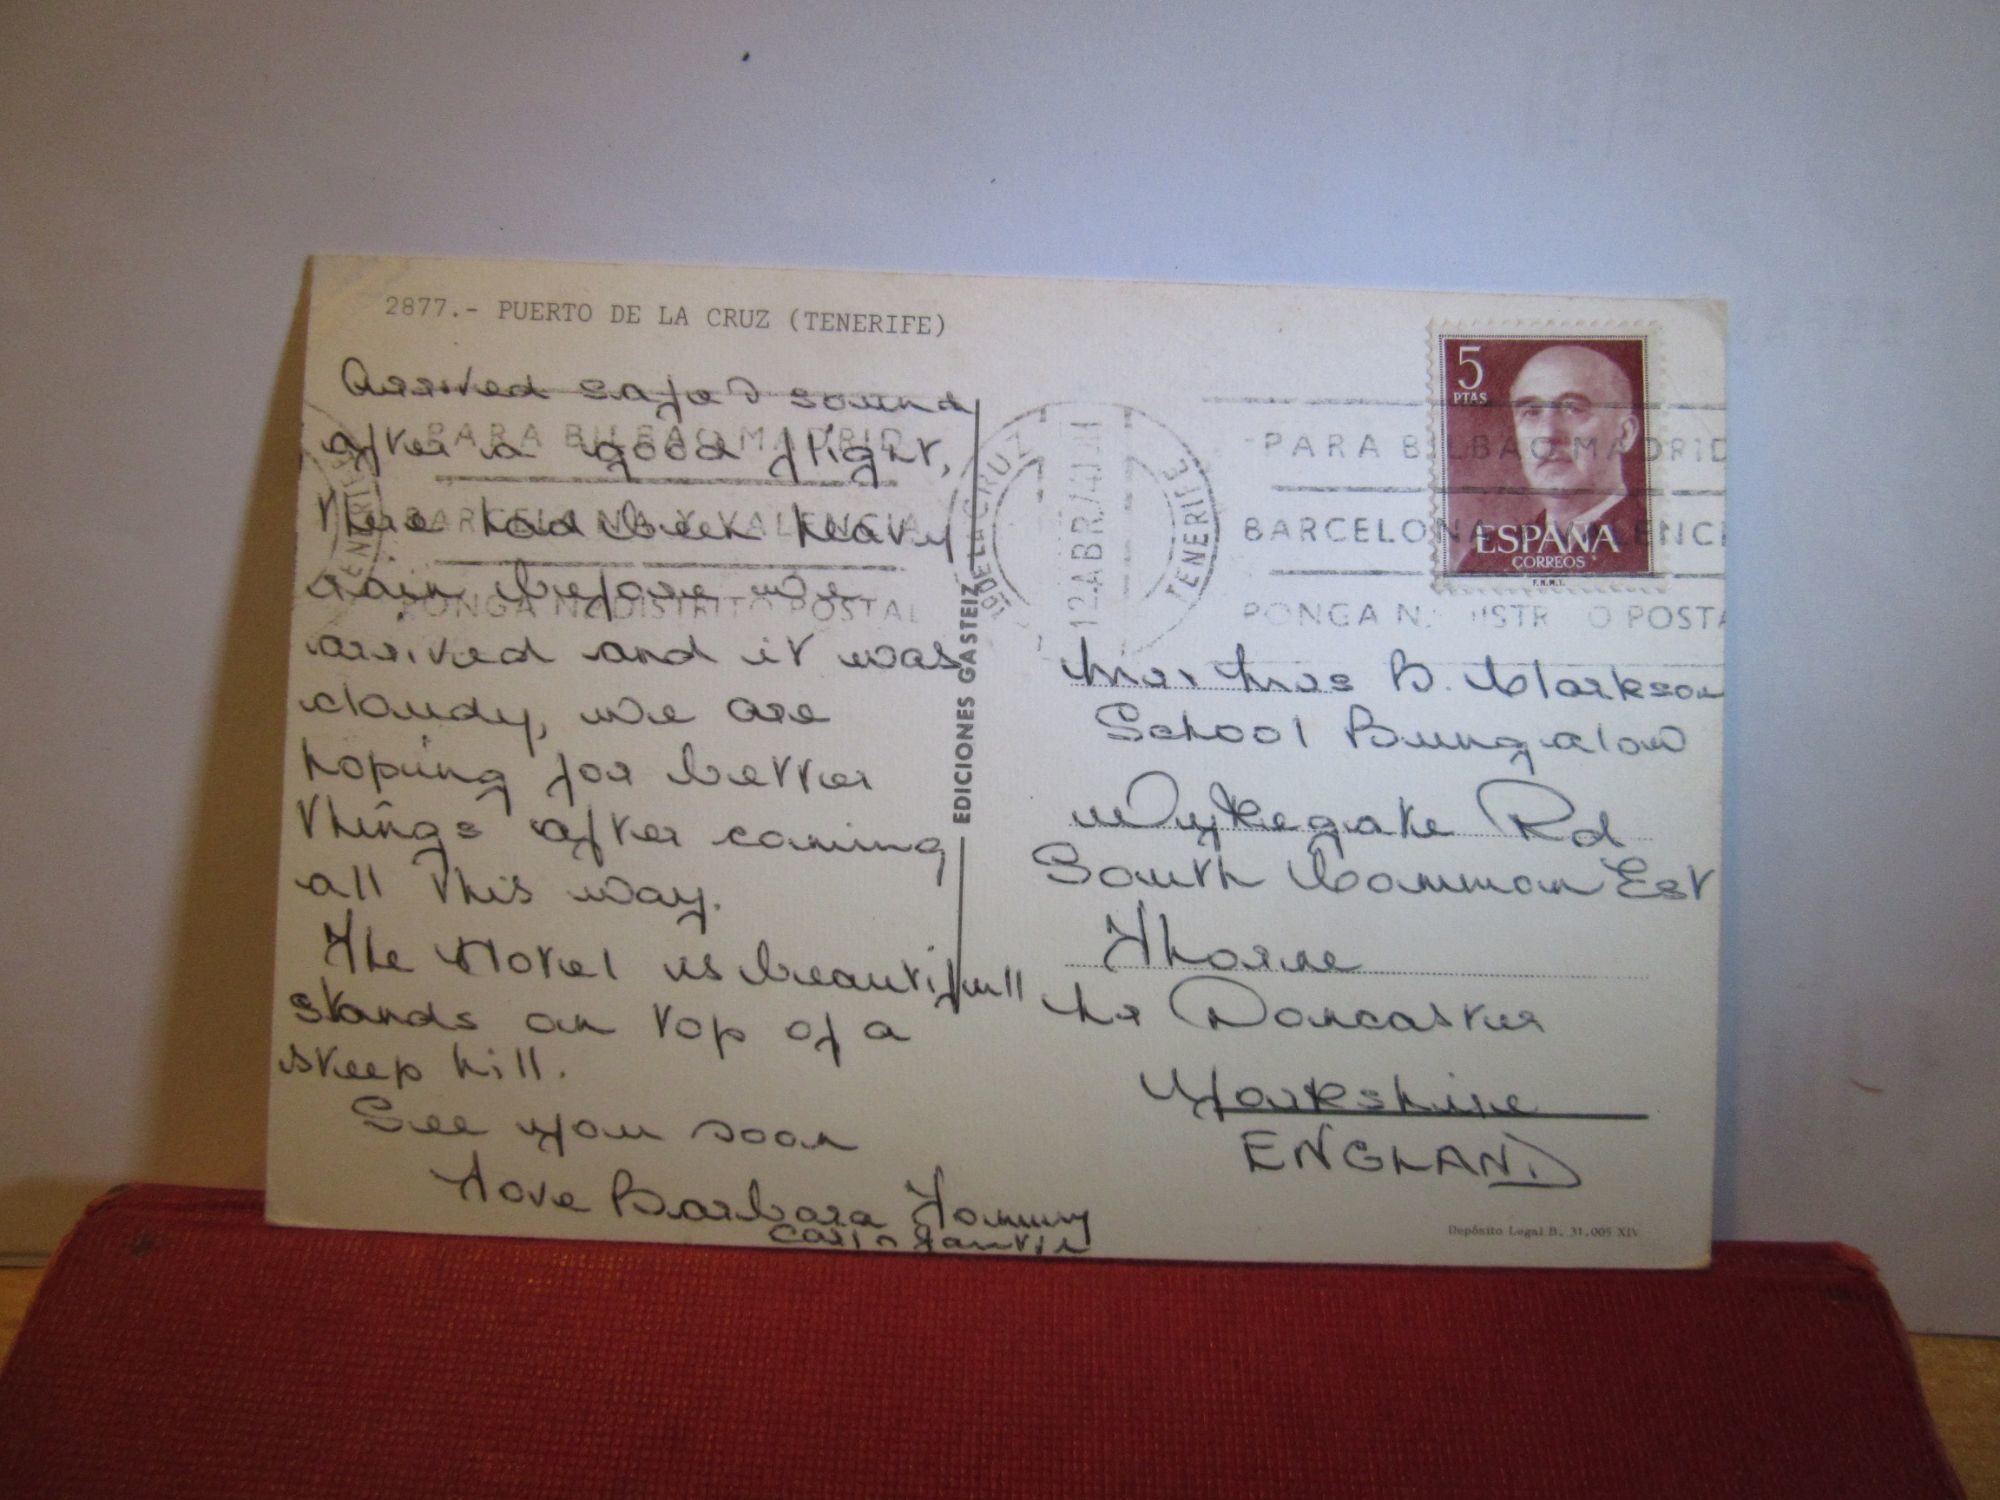 2877.- PUERTO DE LA CRUZ (TENERIFE)
Arrived safe & sound
after a good flight,
there had been heavy
rain before we
arrived and it was
cloudy, we are
hoping for better
things after coming
all this way.
The Hotel is beautifull
stands on top of a
steep hill.
See you soon
Love Barbara Tommy
EDICIONES GASTEIZ
5
PTAS
ESPAÑA
CORREOS
F.N.M.T.
DE LA CRUZ
12.ABR.74
TENERIFE
PARA BILBAO MADRID
BARCELONA VALENCI
PONGA N. DISTRITO POSTA
TENERIFE
PARA BILBAO MADRID
BARCELONA Y VALENCIA
PONGA N. DISTRITO POSTAL
Mr & Mrs B. Clarkson
School Bungalow
Wykegate Rd
South Common Est
Thorne
Nr Doncaster
Yorkshire
ENGLAND
Depósito Legal B. 31.005 XIV